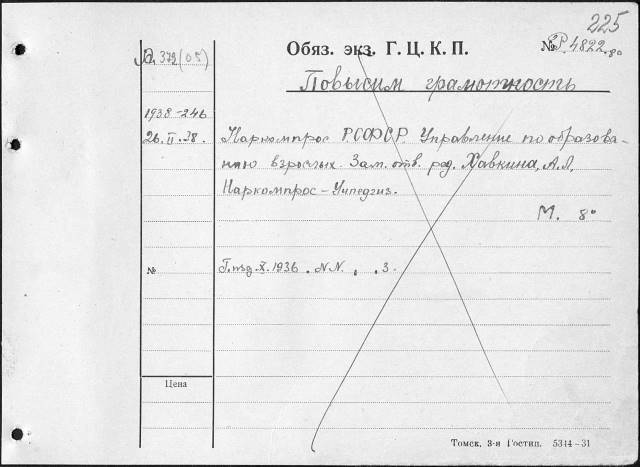 225
Обяз. экз. Г. Ц. К. П.
№ Р. 4822 80
372(05)
Повысим грамотность
1938-246
26.II.38.
Наркомпрос Р.С.Ф.С.Р. Управление по образова-
нию взрослых. Зам. отв. ред. Хавкина, А.Л.
Наркомпрос - Учпедгиз.
М. 8°
№
Г. изд. X. 1936. NN. , . 3.
Цена
Томск, 3-я Гостип. 5344-31